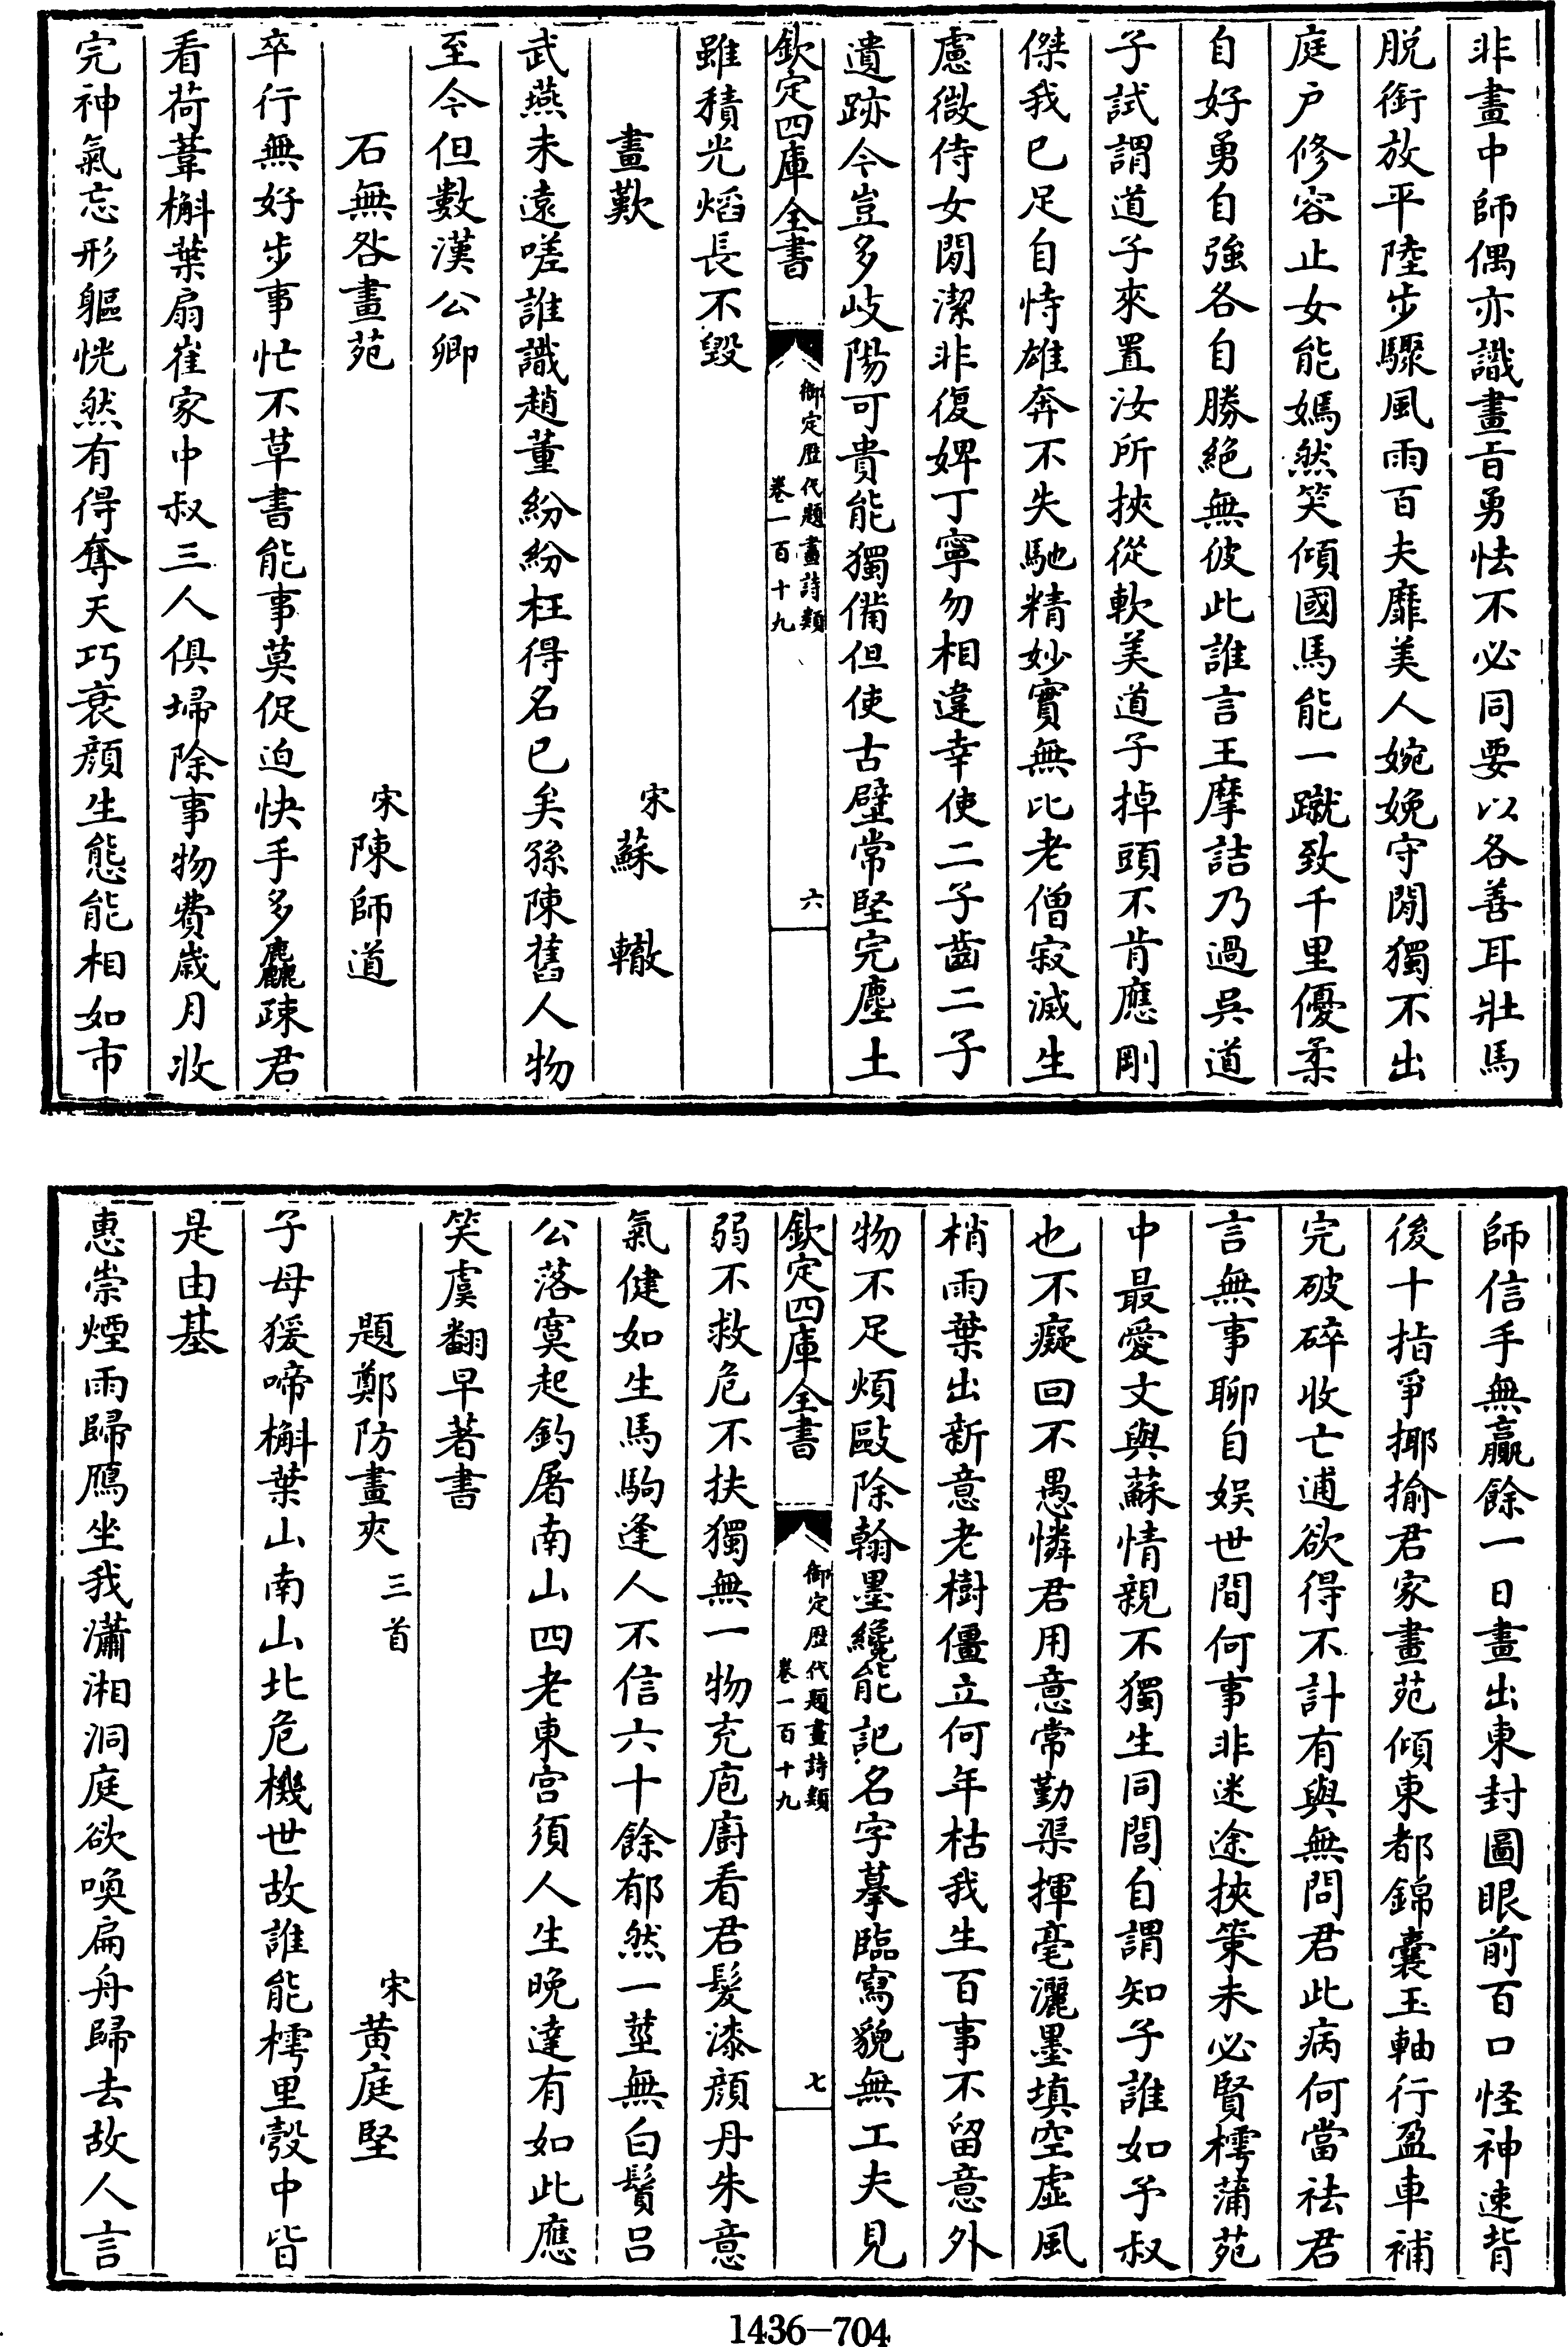 非畫中師偶亦識畫㫖勇怯不必同要以各善耳壯馬
脫銜放平陸步驟風雨百夫靡美人婉娩守閒獨不出
庭户修容止女能嫣然笑傾國馬能一蹴致千里優柔
自好勇自強各自勝絶無彼此誰言王摩詰乃過吳道
子試謂道子來置汝所挾從軟美道子掉頭不肯應剛
傑我已足自恃雄奔不失馳精妙實無比老僧寂滅生
慮微侍女閒潔非復婢丁寧勿相違幸使二子齒二子
遺跡今豈多岐陽可貴能獨備但使古壁常堅完塵土
欽定四庫全書
御定歴代題畫詩類
卷一百十九
六
雖積光熖長不毀
畫歎
宋蘇轍
武燕未遠嗟誰識趙董紛紛枉得名已矣孫陳舊人物
至今但數漢公卿
石無咎畫苑
宋陳師道
卒行無好步事忙不草書能事莫促迫快手多麤疎君
看荷葦槲葉扇崔家中叔三人俱埽除事物費歳月收
完神氣忘形軀恍然有得奪天巧衰顔生態能相如市
師信手無贏餘一日畫出東封圖眼前百口怪神速背
後十指爭揶揄君家畫苑傾東都錦囊玉軸行盈車補
完破碎收亡逋欲得不計有與無問君此病何當祛君
言無事聊自娛世間何事非迷途挾䇿未必賢樗蒲苑
中最愛文與蘇情親不獨生同閭自謂知子誰如予叔
也不癡回不愚憐君用意常勤渠揮毫灑墨填空虛風
梢雨葉出新意老樹僵立何年枯我生百事不留意外
物不足煩毆除翰墨纔能記名字摹臨寫貌無工夫見
欽定四庫全書
御定歴代題畫詩類
卷一百十九
七
弱不救危不扶獨無一物充庖廚看君髮漆顔丹朱意
氣健如生馬駒逢人不信六十餘郁然一莖無白鬚吕
公落寞起釣屠南山四老東宫須人生晚達有如此應
笑虞翻早著書
題鄭防畫夾三首
宋黄庭堅
子母猨啼槲葉山南山北危機世故誰能樗里彀中皆
是由基
惠崇煙雨歸鴈坐我瀟湘洞庭欲喚扁舟歸去故人言
1436-704